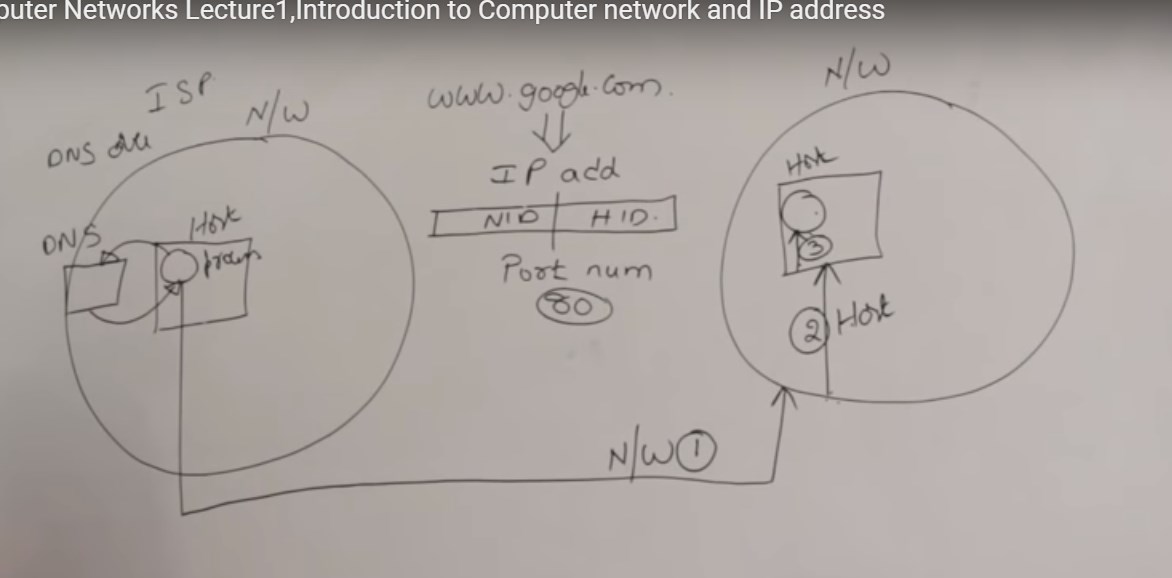 puter Networks Lecture1,Introduction to Computer network and IP address
ISP
N/W
DNS
DNS
Host
www.google.com.
IP add
NID HID.
Port num
80
N/W
Host
3
2 Host
N/W 1